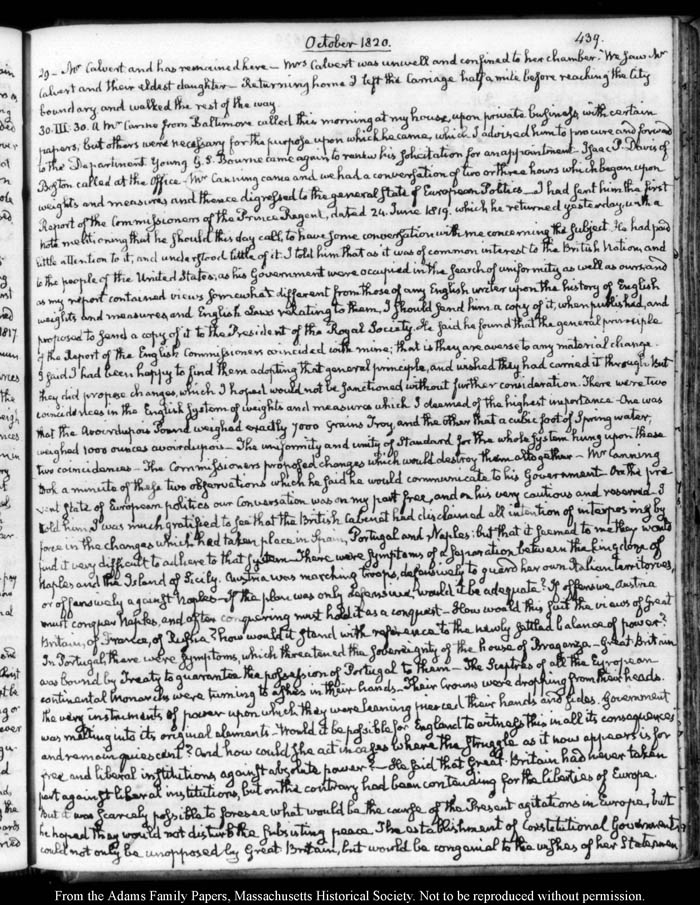 October 1820.
439.
29 – Mr Calvert and has remained here – Mrs Calvert was unwell and confined to her chamber. We saw Mr
Calvert and their eldest daughter – Returning home I left the Carriage half a mile before reaching the City
boundary and walked the rest of the way.
30. III: 30. A Mr from Baltimore called this morning at my house, upon private business with certain
papers; but others were necessary for the purpose upon which he came, which I advised him to procure and forward
to the Department. Young G. S. Bourne came again to renew his solicitation for an appointment – Isaac P. Davis of
Boston called at the Office. Mr Canning came and we had a conversation of two or three hours which began upon
weights and measures and thence digressed to the general State of European Politics – I had sent him the first
Report of the Commissioners of the Prince Regent, dated 24. June 1819. which he returned yesterday, with a
note mentioning that he should this day call, to have some conversation with me concerning the subject. He had paid
little attention to it, and understood little of it. I told him that as it was of common interest to the British Nation, and
to the people of the United States, as his Government were occupied in the search of uniformity as well as ours, and
as my report contained views somewhat different from those of any English writer upon the history of English
weights and measures, and English Laws relating to them, I should send him a copy of it, when published, and
proposed to send a copy of it to the President of the Royal Society. He said he found that the general principle
of the Report of the English Commissioners coincided with mine; that is they are averse to any material change.
I said I had been happy to find them adopting that general principle, and wished they had carried it through. But
they did propose changes, which I hoped would not be sanctioned without further consideration. There were two
coincidences in the English System of weights and measures which I deemed of the highest importance. One was
that the Avoirdupois Pound weighed exactly 7000 Grains Troy, and the other that a cubic foot of Spring water,
weighed 1000 ounces avoirdupois – The uniformity and unity of Standard for the whole System hung upon these
two coincidences – The Commissioners proposed changes which would destroy them altogether – Mr Canning
took a minute of these two observations which he said he would communicate to his Government – On the pre-
sent State of European politics our Conversation was on my part free, and on his very cautious and reserved – I
told him, I was much gratified to see that the British Cabinet had disclaimed all intention of interposing by
force in the changes which had taken place in Spain, Portugal and Naples: but that it seemed to me they would
find it very difficult to adhere to that System – There were symptoms of a separation between the Kingdom of
Naples and the Island of Sicily. Austria was marching troops, defensively to guard her own Italian territories,
or offensively against Naples – If the plan was only defensive, would it be adequate? If offensive, Austria
must conquer Naples, and after conquering must hold it as a conquest – How would this suit the views of Great
Britain, of France, of Russia? how would it stand with reference to the newly settled balance of power?
In Portugal, there were symptoms, which threatened the Sovereignty of the house of Braganza – Great Britain
was bound by Treaty to guarantee the possession of Portugal to them – The Sceptres of all the European
continental Monarchs were turning to ashes in their hands – Their Crowns were dropping from their heads.
the very instruments of power upon which they were leaning pierced their hands and sides. Government
was melting into its original elements – Would it be possible for England to witness this in all its consequences
and remain quiescent? And how could she act in cases where the struggle as it now appears is for
free and liberal institutions, against absolute power? – He said that Great Britain had never taken
part against liberal institutions, but on the contrary had been contending for the liberties of Europe.
But it was scarcely possible to foresee what would be the course of the Present agitations in Europe, but
he hoped they would not disturb the subsisting peace. The establishment of Constitutional Governments
would not only be unopposed by Great Britain, but would be congenial to the wishes of her Statesmen
From the Adams Family Papers, Massachusetts Historical Society. Not to be reproduced without permission.